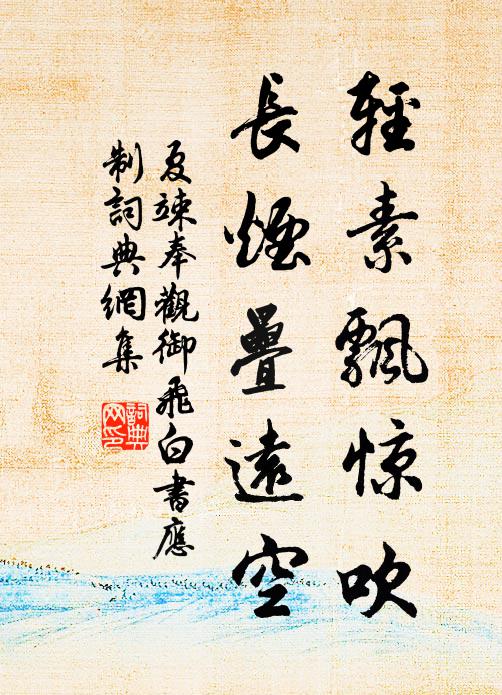 輕素飄惊吹
長煙疊遠空
夏竦奉觀御飛白書應
制詞典網集
詞典网印